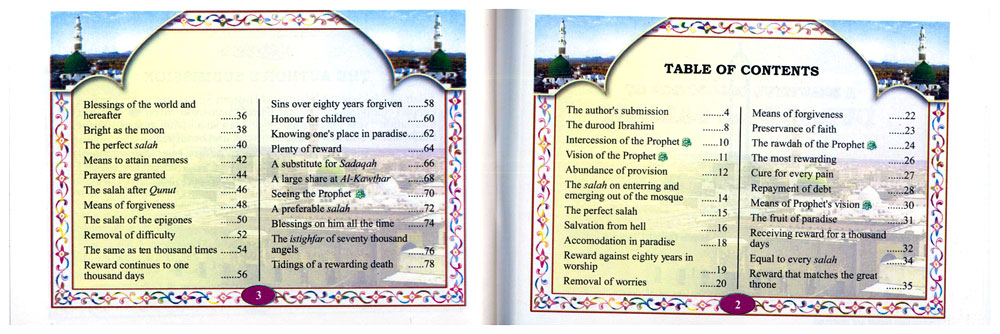 Blessings of the world and
hereafter .....36
Bright as the moon .....38
The perfect salah .....40
Means to attain nearness .....42
Prayers are granted .....44
The salah after Qunut .....46
Means of forgiveness .....48
The salah of the epigones .....50
Removal of difficulty .....52
The same as ten thousand times .....54
Reward continues to one
thousand days .....56
Sins over eighty years forgiven ......58
Honour for children ......60
Knowing one's place in paradise......62
Plenty of reward ......64
A substitute for Sadaqah ......66
A large share at Al-Kawthar ......68
Seeing the Prophet ......70
A preferable salah ......72
Blessings on him all the time ......74
The istighfar of seventy thousand
angels ......76
Tidings of a rewarding death ......78
3
TABLE OF CONTENTS
The author's submission ......4
The durood Ibrahimi ......8
Intercession of the Prophet ......10
Vision of the Prophet ......11
Abundance of provision ......12
The salah on entering and
emerging out of the mosque ......14
The perfect salah ......15
Salvation from hell ......16
Accomodation in paradise ......18
Reward against eighty years in
worship ......19
Removal of worries ......20
Means of forgiveness ......22
Preservance of faith ......23
The rawdah of the Prophet ......24
The most rewarding ......26
Cure for every pain ......27
Repayment of debt ......28
Means of Prophet's vision ......30
The fruit of paradise ......31
Receiving reward for a thousand
days ......32
Equal to every salah ......34
Reward that matches the great
throne ......35
2